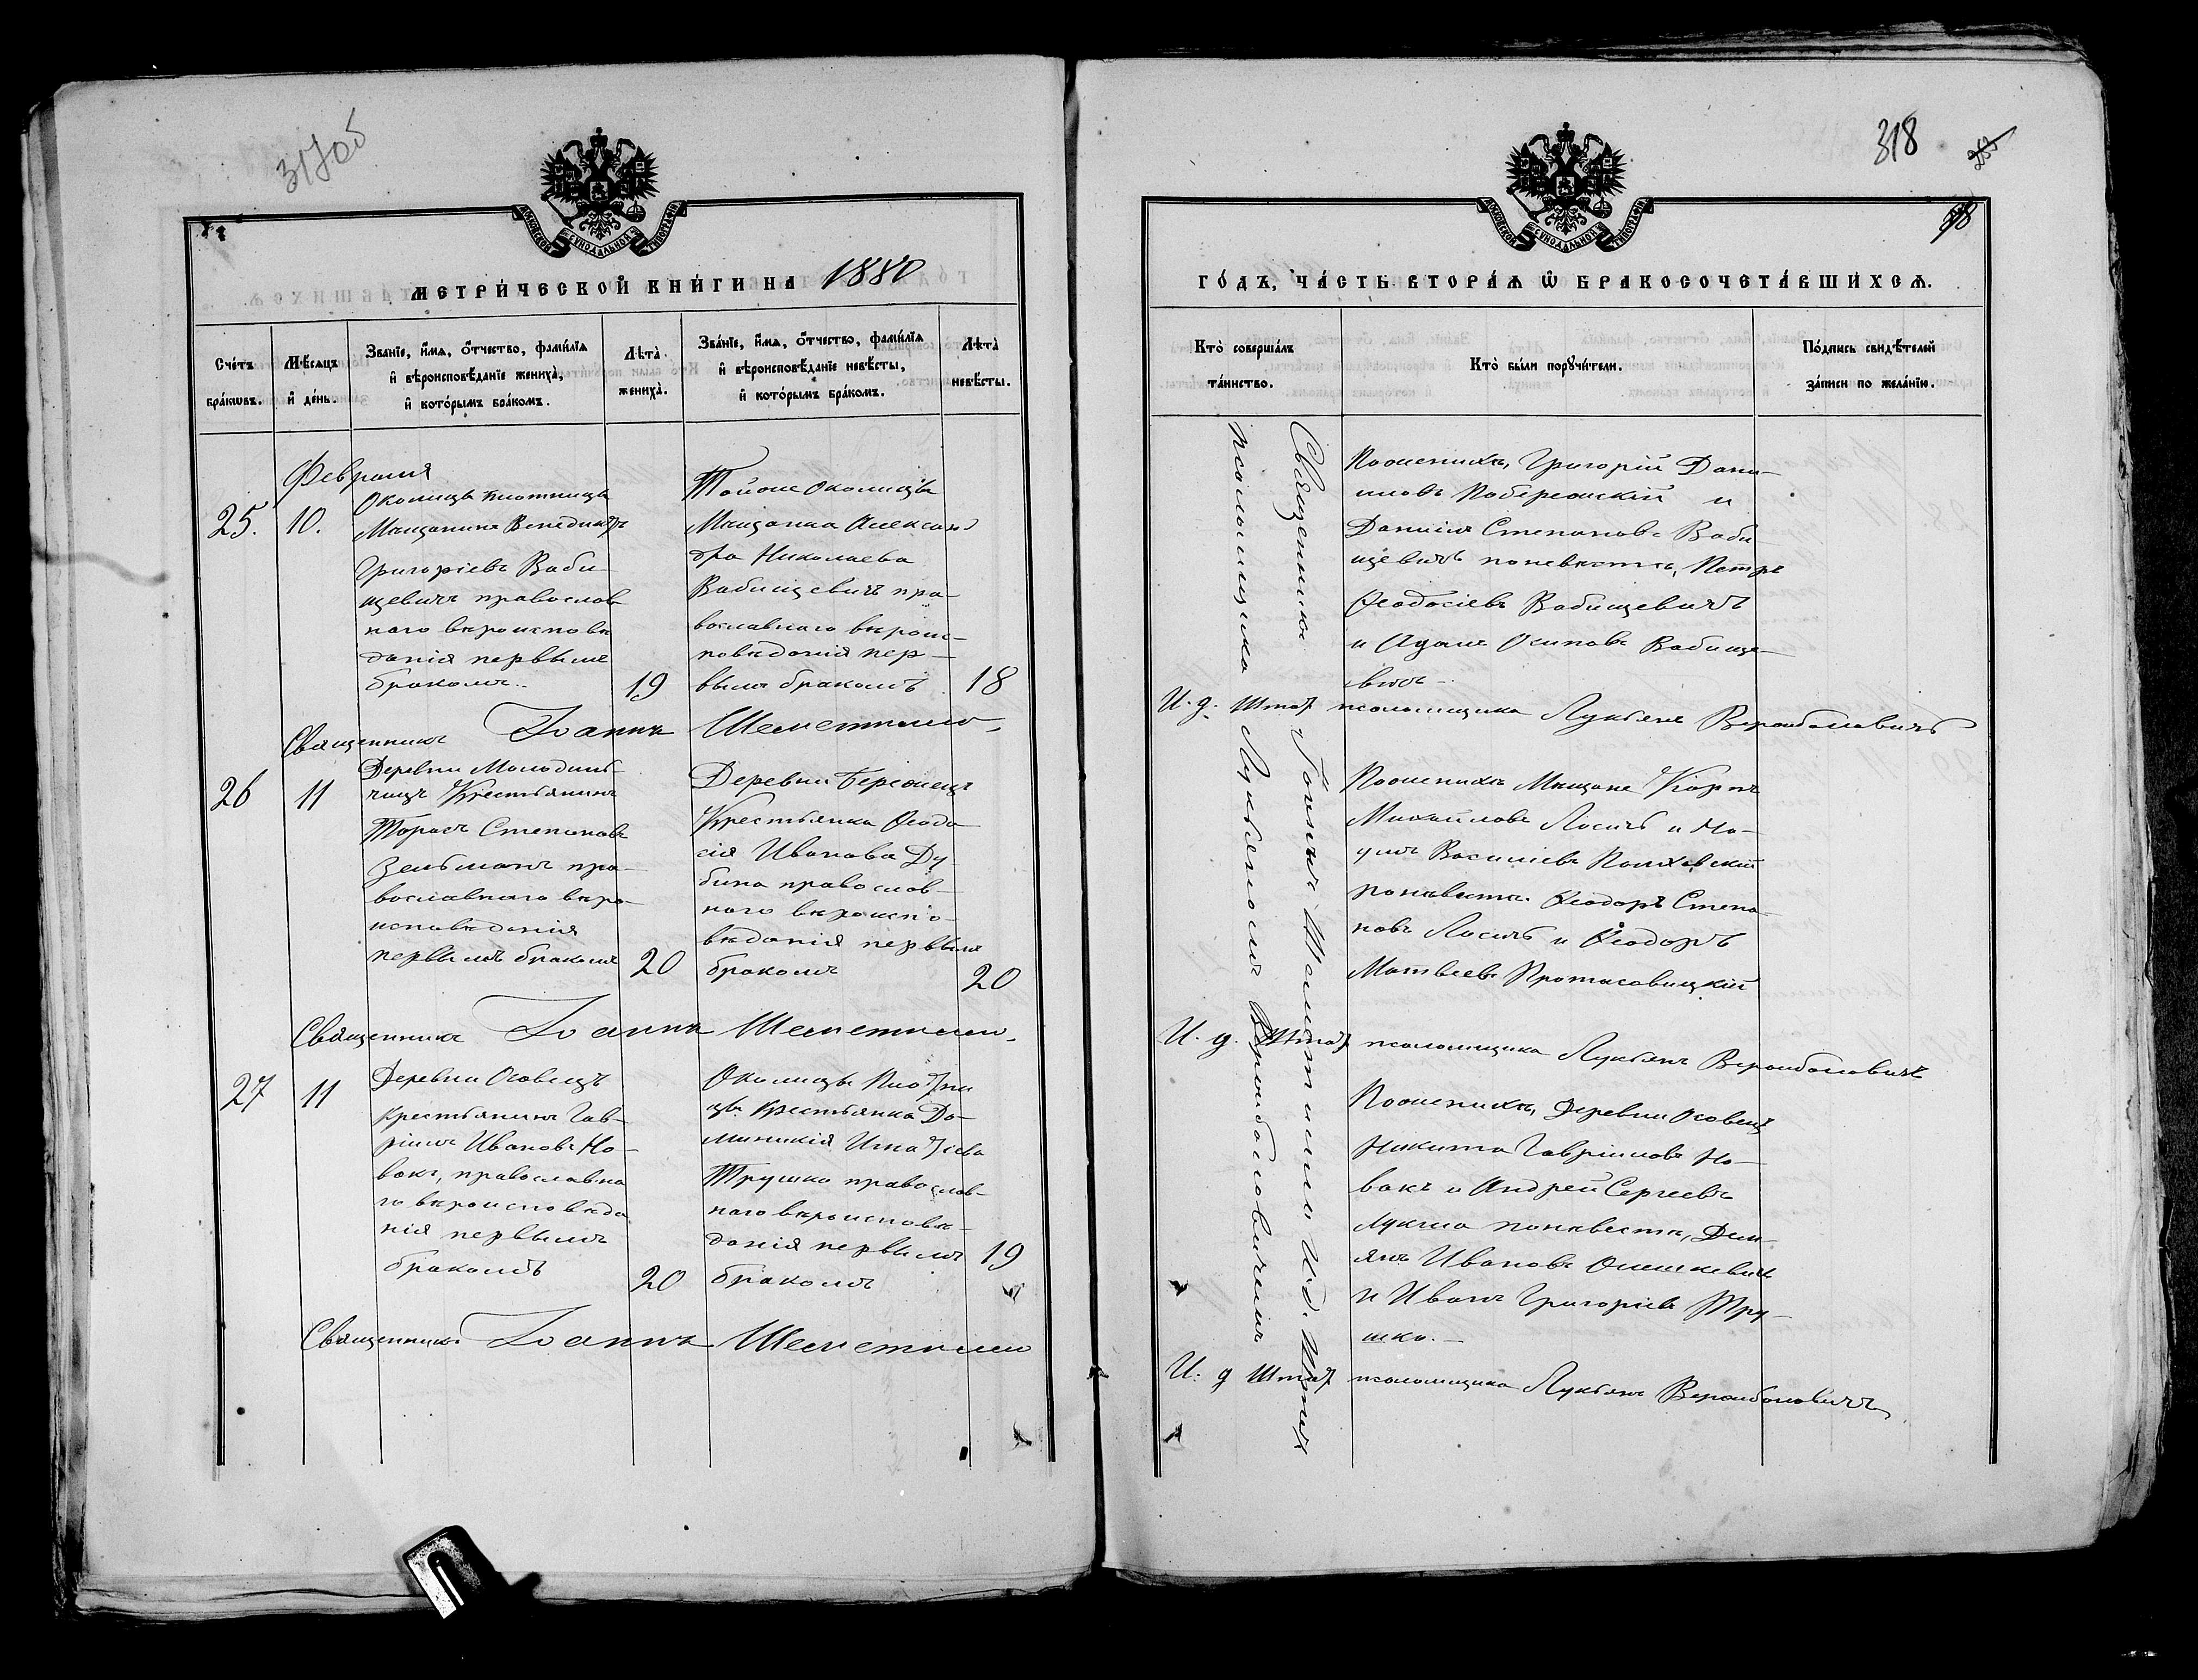 317об
МОСКОВСКОЙ СУНОДАЛЬНОЙ ТИПОГРАФІИ
МЕТРИ́ЧЕСКОЙ КНИ́ГИ НА 1880
Сче́тъ бра́кѡвъ.
Мѣ́сяцъ и́ де́нь.
Зва́нїе, и́мя, ѻ́тчество, фами́лїя и́ вѣроисповѣ́данїе жениха̀, и́ кото́рымъ бра́комъ.
Лѣта̀ жениха̀.
Зва́нїе, и́мя, ѻ́тчество, фами́лїя и́ вѣроисповѣ́данїе невѣ́сты, и́ кото́рымъ бра́комъ.
Лѣта̀ невѣ́сты.
Февраля
25.
10.
Околицы Плотницы
Мѣщанинъ Венедиктъ
Григоріевъ Ваби-
щевичъ православ
наго вѣроисповѣ
данія первымъ
бракомъ.
19
Тойже Околицы
Мѣщанка Алексан
дра Николаева
Вабищевичъ пра-
вославнаго вѣроис-
повѣданія пер-
вымъ бракомъ
18
Священникъ Іоаннъ Шеметилло
26
11
Деревни Молодиль-
чицъ Крестьянинъ
Тарасъ Степановъ
Зельманъ пра-
вославнаго вѣро-
исповѣданія
первымъ бракомъ
20
Деревни Бережецъ
Крестьянка Ѳеодо
сія Иванова Ду-
бина православ-
наго вѣроиспо-
вѣданія первымъ
бракомъ
20
Священникъ Іоаннъ Шеметилло
27
11
Деревни Осовецъ
Крестьянинъ Гав-
ріилъ Ивановъ Но-
вакъ, православна
го вѣроисповѣда
нія первымъ
бракомъ
20
Околицы Плотни
цы Крестьянка До-
миникія Игнатіева
Трушко православ-
наго вѣроисповѣ-
данія первымъ
бракомъ
19
Священникъ Іоаннъ Шеметилло
318
253
МОСКОВСКОЙ СУНОДАЛЬНОЙ ТИПОГРАФІИ
ГО́ДЪ, ЧА́СТЬ ВТОРА́Я Ѡ БРАКОСОЧЕТА́ВШИХСЯ.
Кто̀ соверша́лъ та́инство.
Кто̀ бы́ли порꙋчи́тели.
По́дпись свидѣ́телей за́писи по жела́нїю.
Священникъ Іоаннъ Шеметилло И. д. Штат.
псаломщика Лукьяномъ Вержболовичемъ
Поженихѣ, Григорій Дани-
ловъ Побережскій и
Даніилъ Степановъ Ваби-
щевичъ поневѣстѣ, Петръ
Ѳеодосіевъ Вабищевичъ
и Адамъ Осиповъ Вабище-
вичъ
И. д. Штат. псаломщика Лукьянъ Вержболовичъ
Поженихѣ Мѣщане Карпъ
Михайловъ Лосичъ и На-
умъ Василіевъ Полховскій
поневѣстѣ Ѳеодоръ Степа-
новъ Лосичъ и Ѳеодоръ
Матвѣевъ Протасовицкій
И. д. Штат. псаломщика Лукьянъ Вержболовичъ
Поженихѣ, Деревни Осовецъ
Никита Гавріиловъ Но-
вакъ и Андрей Сергѣевъ
поневѣстѣ, Дем-
янъ Ивановъ Олешкевичъ
и Иванъ Григоріевъ Тру-
шко.
И. д Штат. псаломщика Лукьянъ Вержболовичъ